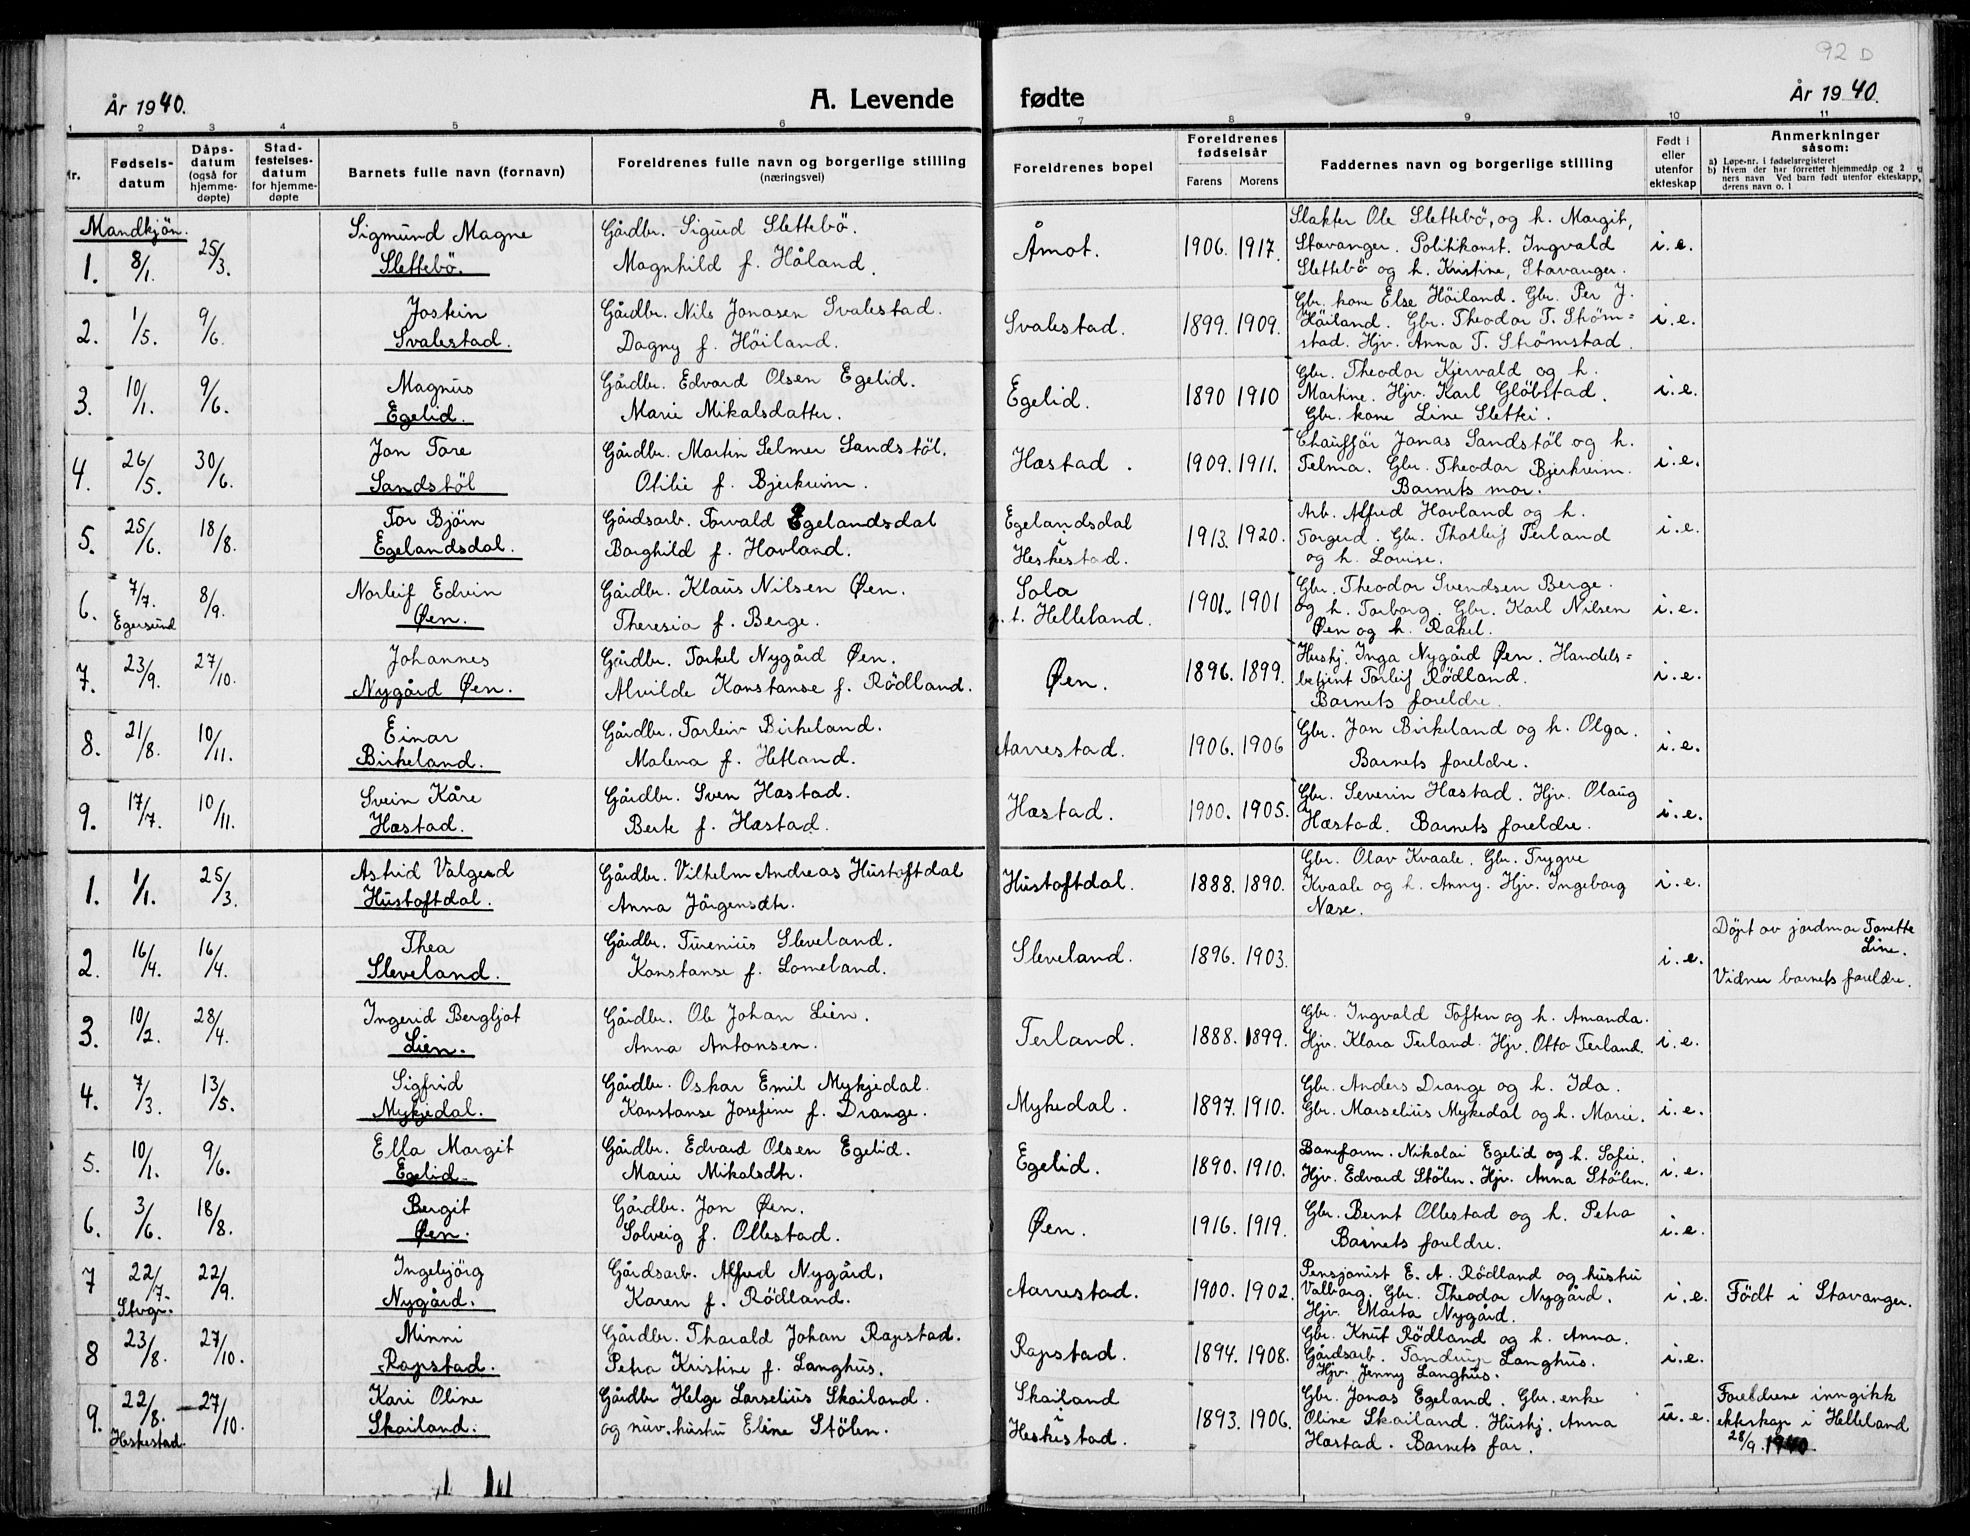 92 D
År 1940.
A. Levende fødte
År 1940.
1 2 3 4 5 6 7 8 9 10 11
Nr.
Fødsels-
datum
Dåps-
datum
(også for
hjemme-
døpte)
Stad-
festelses-
datum
for hjemme-
døpte
Barnets fulle navn (fornavn)
Foreldrenes fulle navn og borgerlige stilling
(næringsvei)
Foreldrenes bopel
Foreldrenes
fødselsår
Farens Morens
Faddernes navn og borgerlige stilling
Født i
eller
utenfor
ekteskap
Anmerkninger
såsom:
a) Løpe-nr. i fødselsregisteret
b) Hvem der har forrettet hjemmedåp og 2
ners navn Ved barn født utenfor ekteskapp,
derens navn o. l
Mandkjön.
1. 8/1. 25/3. Sigmund Magne
Slettebö.
Gårdbr. Sigurd Slettebö.
Magnhild f. Håland.
Åmot. 1906. 1917.
Slakter Ole Slettebö, og h. Margit,
Stavanger. Politikonst. Ingvald
Slettebö og h. Kristine, Stavanger.
i. e.
2. 1/5. 9/6. Jostein
Svalestad.
Gårdbr. Nils Jonasen Svalestad.
Dagny f. Höiland.
Svalestad. 1899. 1909.
Gbr. kone Else Höiland. Gbr. Per J.
Höiland. Gbr. Theodor T. Strøm=
stad. Hjv. Anna T. Strømstad.
i. e.
3. 10/1. 9/6. Magnus
Egelid.
Gårdbr. Edvard Olsen Egelid.
Marie Mikalsdatter.
Egelid. 1890 1910
Gbr. Theodor Kjervald og h.
Martine. Hjv. Karl Glöbstad.
Gbr. kone Line Slettei.
i. e.
4. 26/5. 30/6. Jon Tore
Sandstöl
Gårdbr. Martin Selmer Sandstöl.
Otilie f. Bjerkreim.
Hæstad. 1909. 1911.
Chauffør Jonas Sandstöl og h.
Telma. Gbr. Theodor Bjerkreim.
Barnets mor.
i. e.
5. 25/6. 18/8. Tor Björn
Egelandsdal.
Gårdsarb. Torvald Egelandsdal
Borghild f. Hovland.
Egelandsdal
i
Heskestad.
1913. 1920.
Arb. Alfred Hovland og h.
Torgerd. Gbr. Thorleif Terland
og h. Lovise.
i. e.
6. 7/7. Egersund 8/9. Norleif Edvin
Øen.
Gårdbr. Klaus Nilsen Øen.
Theresia f. Berge.
Sola
p. t. Helleland.
1901. 1901
Gbr. Theodor Svendsen Berge.
og h. Torborg. Gbr. Karl Nilsen
Øen og h. Rakel.
i. e.
7. 23/9. 27/10. Johannes
Nygård Øen.
Gårdbr. Torkel Nygård Øen.
Alvilde Konstanse f. Rödland.
Øen. 1896. 1899.
Hushj. Inga Nygård Øen. Handels=
betjent Torleif Rödland.
Barnets foreldre.
i. e.
8. 21/8. 10/11. Einar
Birkeland.
Gårdbr. Torleiv Birkeland.
Malena f. Hetland.
Aarrestad. 1906. 1906
Gbr. Jon Birkeland og h. Olga.
Barnets foreldre.
i. e.
9. 17/7. 10/11. Svein Kåre
Hæstad.
Gårdbr. Sven Hæstad.
Berte f. Hæstad.
Hæstad. 1900. 1905.
Gbr. Severin Hæstad. Hjv. Olaug
Hæstad. Barnets foreldre.
i. e.
1. 1/1. 25/3. Astrid Valgerd
Hustoftdal.
Gårdbr. Vilhelm Andreas Hustoftdal
Anna Jörgensdtr.
Hustoftdal. 1888. 1890.
Gbr. Olav Kvaale. Gbr. Trygve
Kvaale og h. Anny. Hjv. Ingeborg
Næse.
i. e.
2. 16/4. 16/4. Thea
Sleveland.
Gårdbr. Turenius Sleveland.
Konstanse f. Lomeland.
Sleveland. 1896. 1903.
i. e.
Döpt av jordmor Tonette
Line.
Vidner barnets foreldre.
3. 10/2. 28/4. Ingerid Bergljot
Lien.
Gårdbr. Ole Johan Lien.
Anna Antonsen.
Terland. 1888. 1899.
Gbr. Ingvald Toften og h. Amanda.
Hjv. Klara Terland. Hjv. Otto Terland.
i. e.
4. 7/3. 13/5. Sigfrid
Mykjedal.
Gårdbr. Oskar Emil Mykjedal.
Konstanse Josefine f. Drange.
Mykedal. 1897. 1910.
Gbr. Anders Drange og h. Ida.
Gbr. Marselius Mykedal og h. Marie.
i. e.
5. 10/1. 9/6. Ella Margit
Egelid.
Gårdbr. Edvard Olsen Egelid.
Marie Mikalsdtr.
Egelid. 1890. 1910.
Baneform. Nikolai Egelid og h. Sofie.
Hjv. Edvard Stölen. Hjv. Anna Stölen.
i. e.
6. 3/6. 18/8. Bergit
Øen.
Gårdbr. Jon Øen.
Solveig f. Ollestad.
Øen. 1916. 1919.
Gbr. Bernt Ollestad og h. Petra
Barnets foreldre.
i. e.
7 22/7. Stvgr. 22/9. Ingebjörg
Nygård.
Gårdsarb. Alfred Nygård.
Karen f. Rödland.
Aarrestad. 1900. 1902.
Pensjonist E. A. Rödland og hustru
Valborg. Gbr. Theodor Nygård.
Hjv. Marta Nygård.
i. e. Födt i Stavanger.
8 23/8. 27/10. Minni
Rapstad.
Gårdbr. Tharald Johan Rapstad.
Petra Kristine f. Langhus.
Rapstad. 1894. 1908.
Gbr. Knut Rödland og h. Anna.
Gårdsarb. Tandrup Langhus.
Hjv. Jenny Langhus.
i. e.
9. 22/8. Heskestad. 27/10. Kari Oline
Skailand.
Gårdbr Helge Larselius Skailand.
og nuv. hustru Eline Stölen.
Skailand
i
Heskestad.
1893. 1906.
Gbr. Jonas Egeland. Gbr. enke
Oline Skailand. Hushj. Anna
Hæstad. Barnets far.
u. e.
Foreldrene inngikk
ekteskap i Helleland
28/9. 1940.